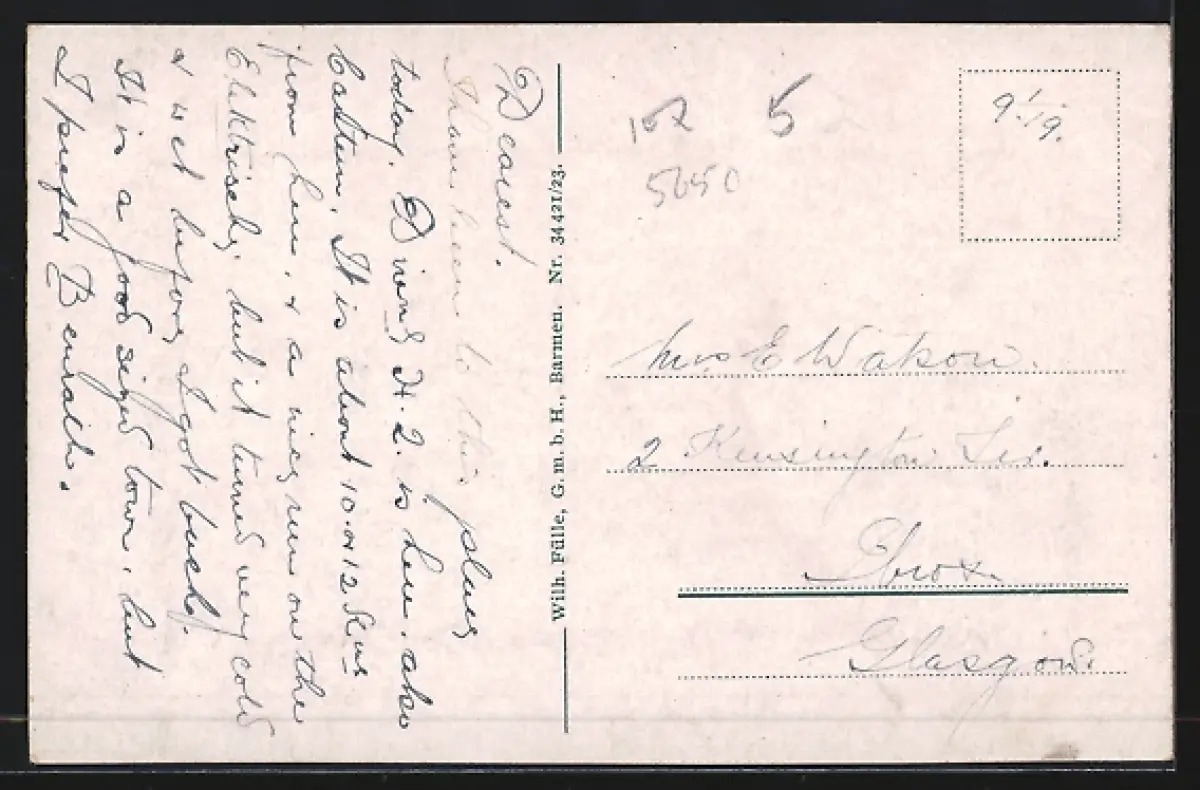 Dearest.
I have been to this place
today. Divnl H.Q. is here. also
Casteen. It is about 10 or 12 Kms
from here, & a nice run on the
Elektrisch, but it turned very cold
& wet before I got back.
It is a good sized town, but
I prefer Benrath.
Wilh. Fülle, G. m. b. H., Barmen. Nr. 34421/23.
5
9.1.19.
Mrs E Watson.
2 Kensington Ter.
Ibrox
Glasgow.